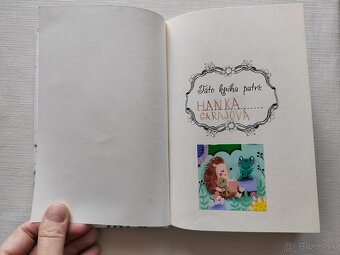 Táto kniha patrí:
HANKA......
GARAJOVÁ
Bazos.sk